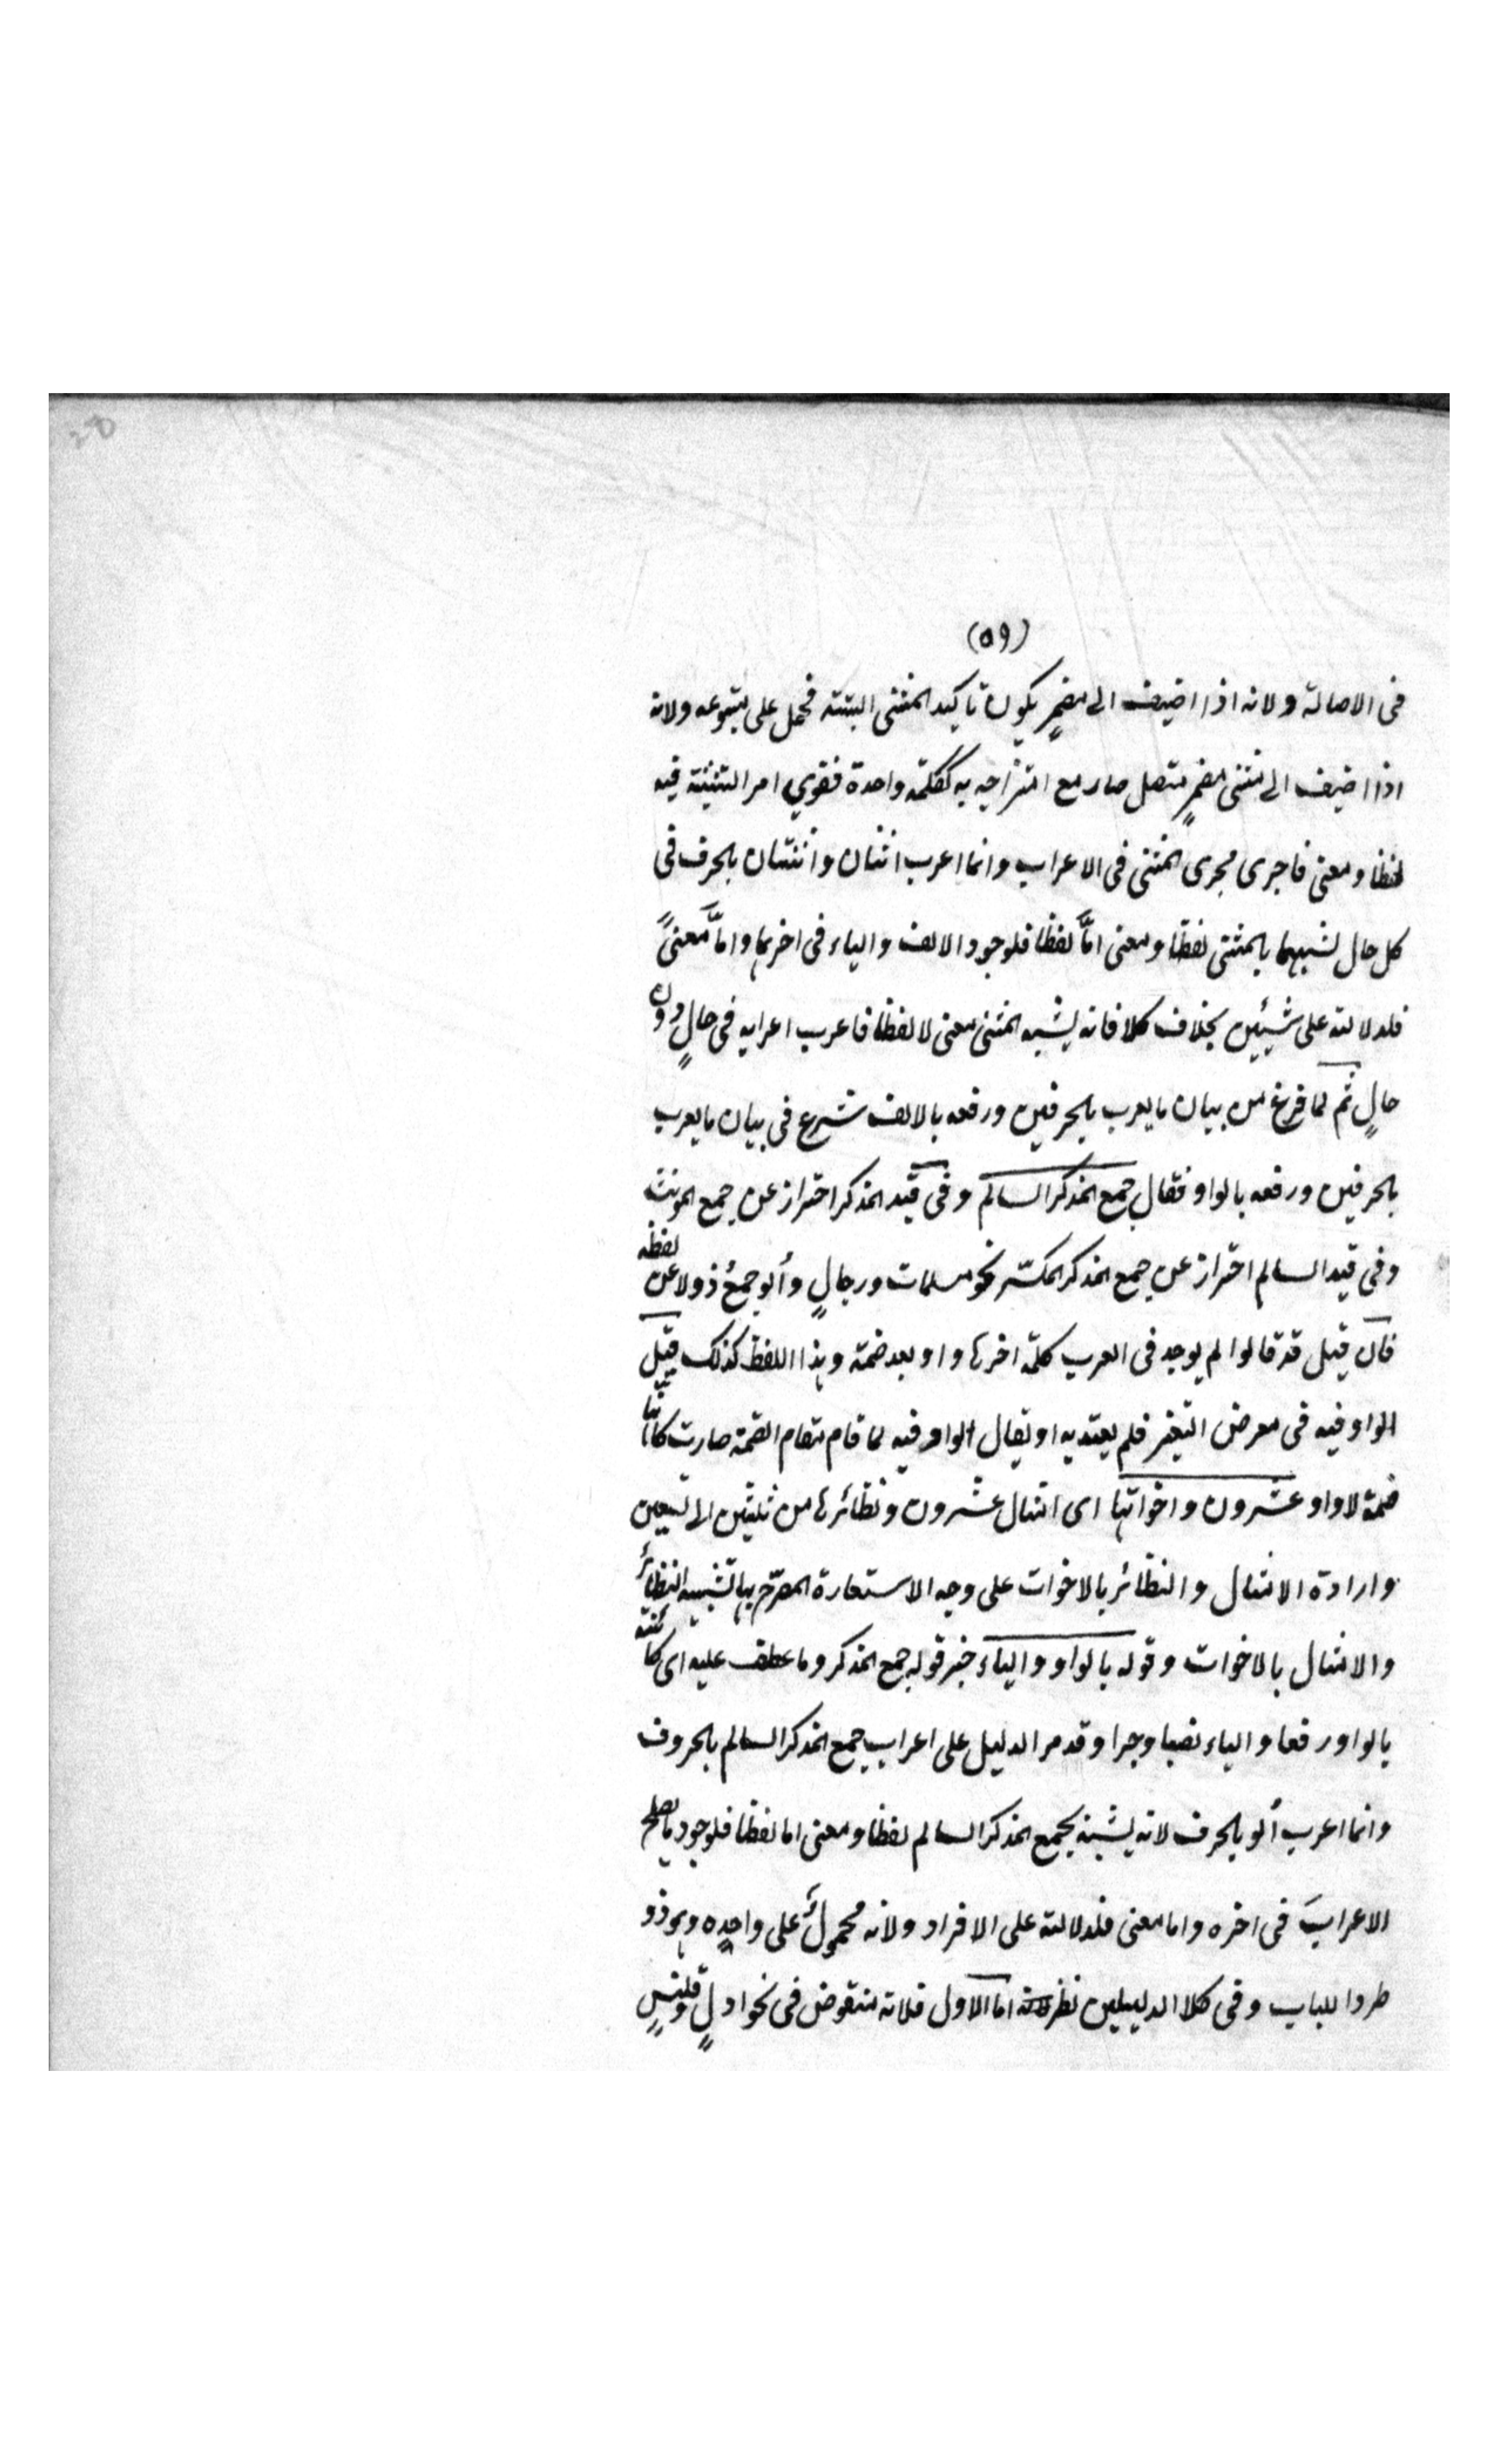 (٥٩)
فى الاصالة ولانه اذا اضيف الى مضمرٍ يكون تاكيد المثنى البتة فحمل على متبوعه ولانه
اذا اضيف الى مثنى مضمرٍ متصل صار مع امتزاجه به ككلمة واحدة فقوي امر التثنية فيه
لفظا ومعنى فاجرى مجرى المثنى فى الاعراب وانما اعرب اثنان واثنتان بالحرف فى
كل حال لشبههما بالمثنى لفظا ومعنى امَّا لفظا فلوجود الالف والياء فى اخرهما وامَّا معنىً
فلدلالته على شيئين بخلاف كلا فانه يشبه المثنى معنى لا لفظا فاعرب اعرابه فى حالٍ دون
حالٍ ثم لما فرغ من بيان ما يعرب بالحرفين ورفعه بالالف شرع فى بيان ما يعرب
بالحرفين ورفعه بالواو فقال جمع المذكر السالم وفى قيد المذكر احتراز عن جمع المونث
وفى قيد السالم احتراز عن جمع المذكر المكسّر نحو مسلمات ورجالٍ وأُلو جمعُ ذو لا عن لفظه
فان قيل قد قالوا لم يوجد فى العرب كلمة اخرها واو بعد ضمة وهذا اللفظ كذلك قيل
الواو فيه فى معرض التغير فلم يعتد به او يقال الواو فيه لما قام مقام الضمة صارت كانّها
ضمة لا واو عشرون واخواتها اى امثال عشرون ونظائرها من ثلثين الى تسعين
وارادة الامثال والنظائر بالاخوات على وجه الاستعارة المصرّح بها تشبيه النظائر
والامثال بالاخوات وقوله بالواو والياء خبر قوله جمع المذكر وما عطف عليه اى كائنة
بالواو رفعا والياء نصبا وجرا وقد مر الدليل على اعراب جمع المذكر السالم بالحروف
وانما اعرب أُلو بالحرف لانه يشبه بجمع المذكر السالم لفظا ومعنى اما لفظا فلوجود ما يصلح
الاعرابَ فى اخره واما معنى فلدلالته على الافراد ولانه محمولٌ على واحدِه وهو ذو
طردا للباب وفى كلا الدليلين نظر اما الاول فلانه منقوض فى نحو ادلٍ وقلنسٍ